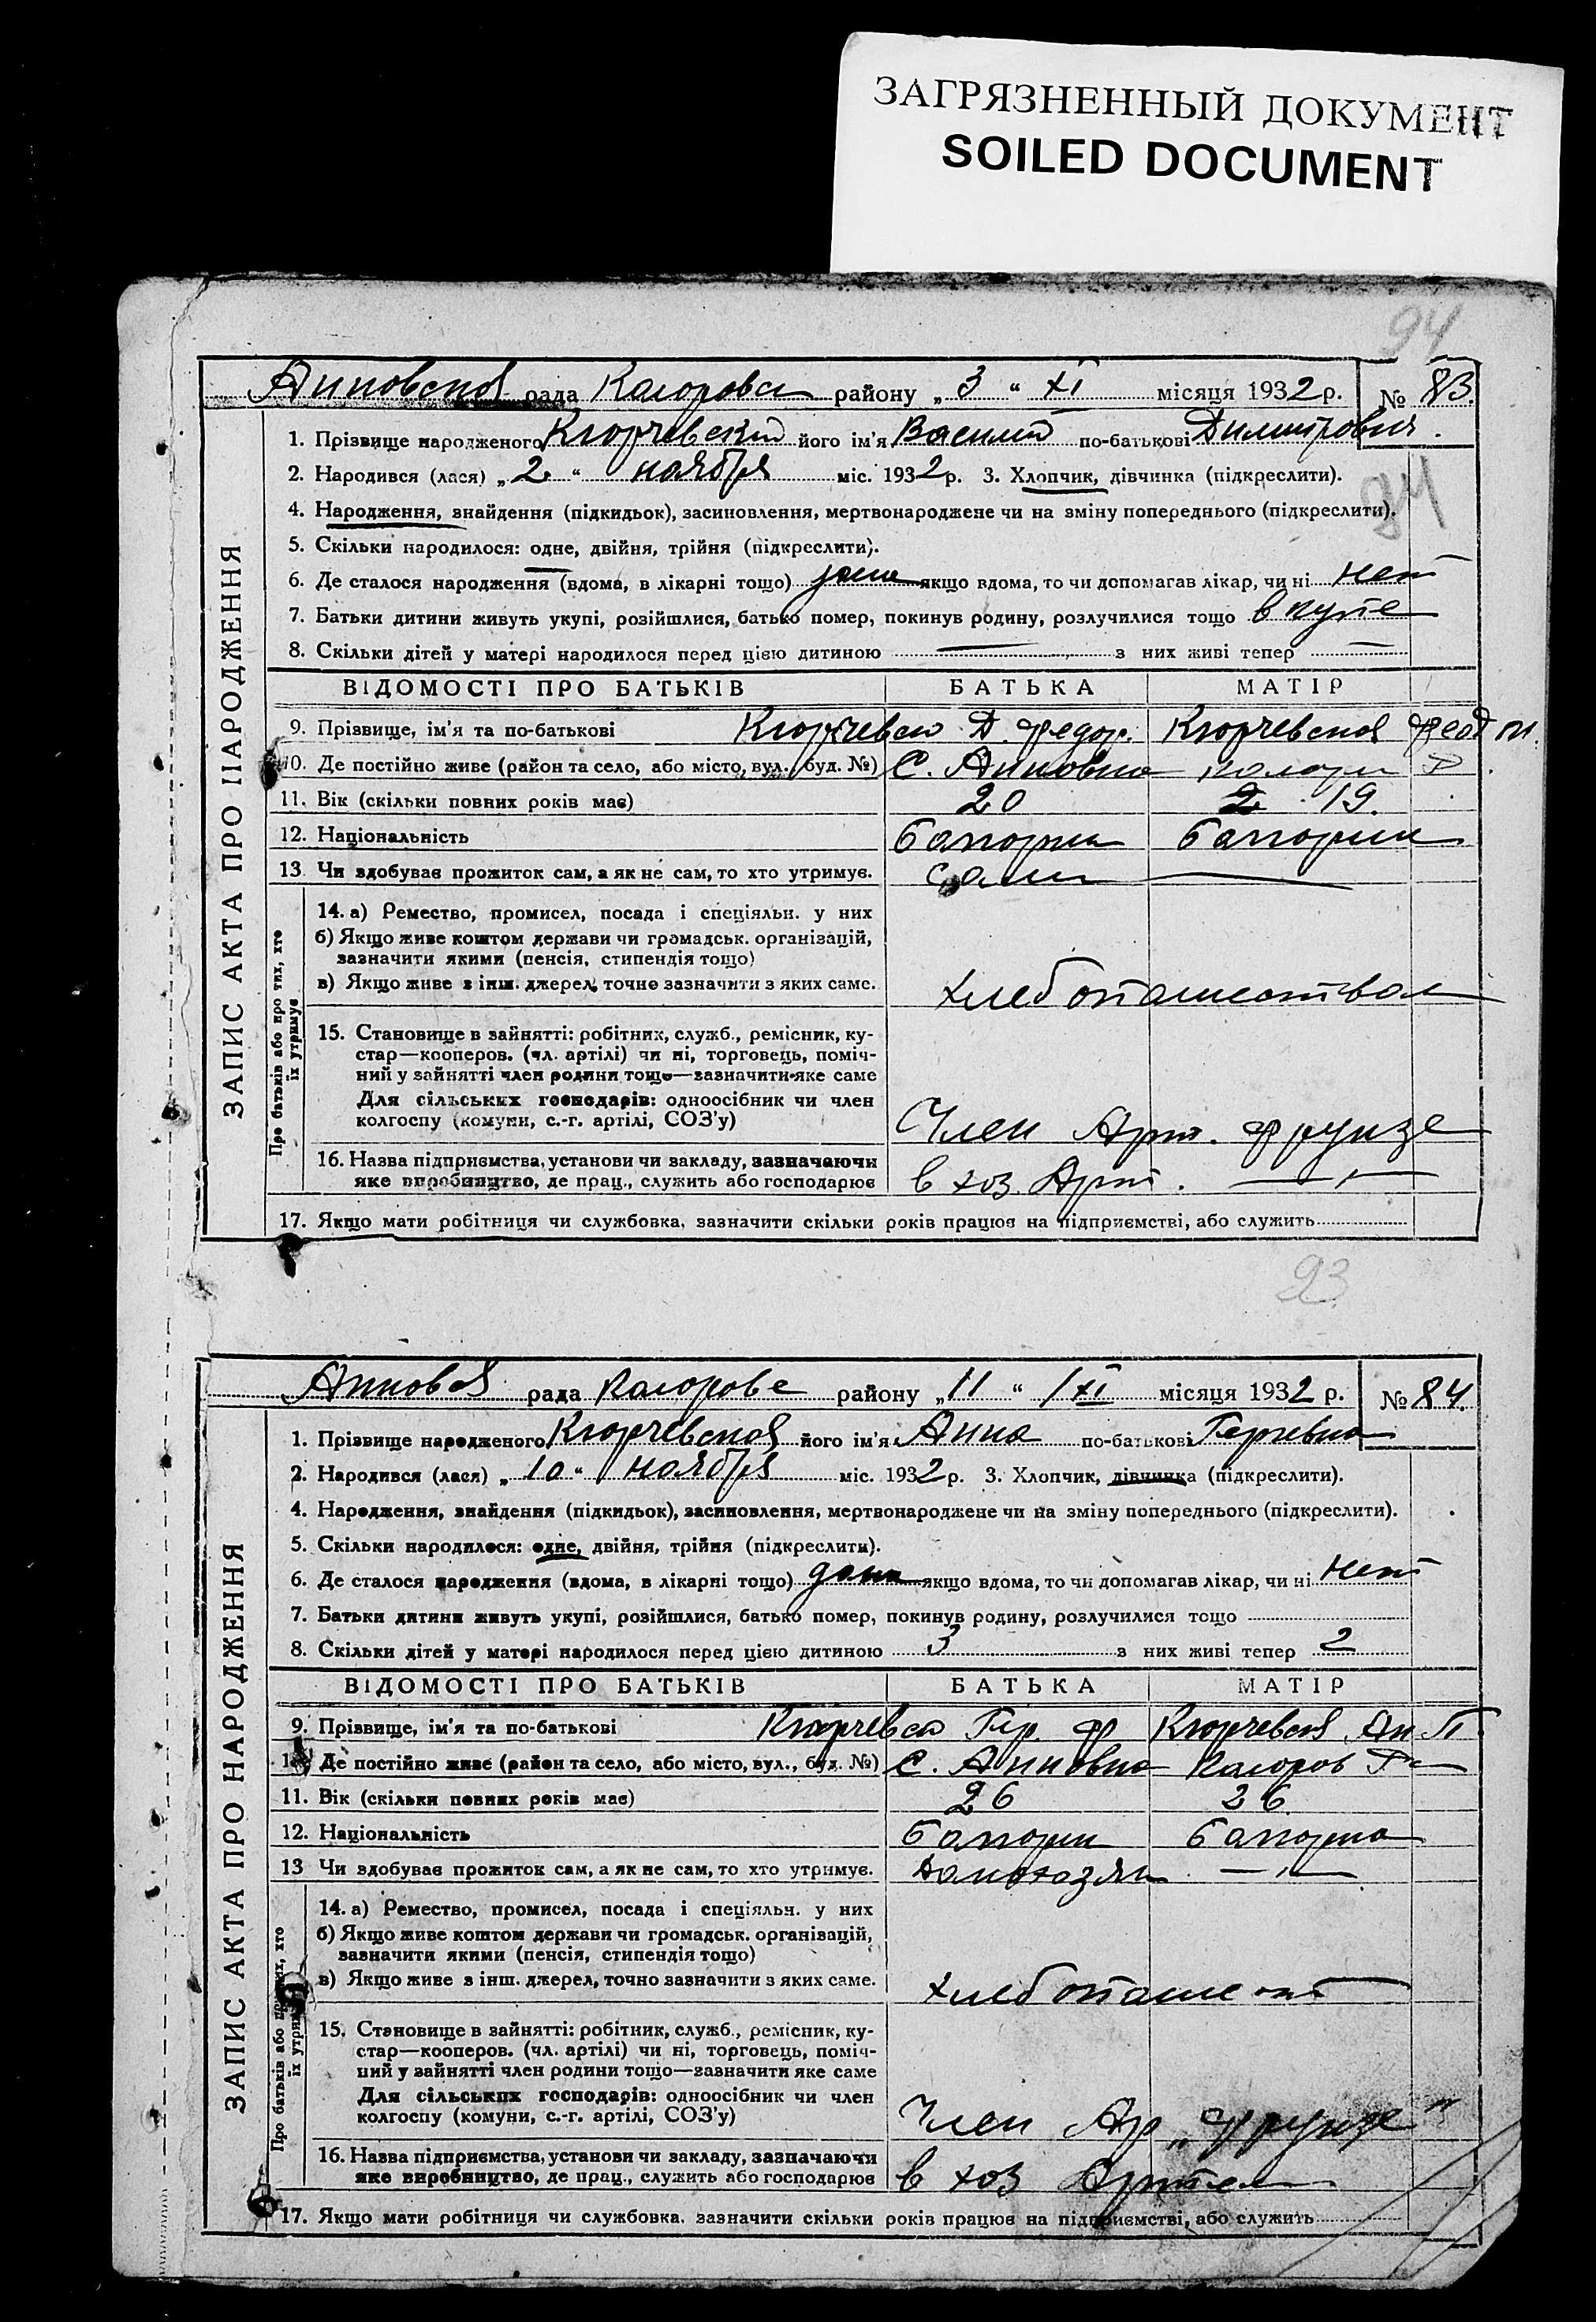 ЗАГРЯЗНЕННЫЙ ДОКУМЕНТ
SOILED DOCUMENT
94
рада района району „ 3 “ XI місяця 1932 р. № 83.
1. Прізвище народженого Кюрчевский його ім'я Василий по-батькові Димитрович.
2. Народився (лася) „ 2 “ ноября міс. 1932 р. 3. Хлопчик, дівчинка (підкреслити).
94
4. Народження, знайдення (підкидьок), засиновлення, мертвонароджене чи на зміну попереднього (підкреслити).
5. Скільки народилося: одне, двійня, трійня (підкреслити).
6. Де сталося народження (вдома, в лікарні тощо) дома якщо вдома, то чи допомагав лікар, чи ні нет
7. Батьки дитини живуть укупі, розійшлися, батько помер, покинув родину, розлучилися тощо вкупе
8. Скільки дітей у матері народилося перед цією дитиною — з них живі тепер —
ВІДОМОСТІ ПРО БАТЬКІВ БАТЬКА МАТІР
9. Прізвище, ім'я та по-батькові Кюрчевск Д. Федор. Кюрчевская
10. Де постійно живе (район та село, або місто, вул., буд. №) С. Анновка
11. Вік (скільки повних років має) 20 19.
12. Національність
13 Чи здобуває прожиток сам, а як не сам, то хто утримує. Сами —
14. а) Ремество, промисел, посада і спеціяльн. у них
б) Якщо живе коштом держави чи громадськ. організацій,
зазначити якими (пенсія, стипендія тощо)
в) Якщо живе з інш. джерел, точно зазначити з яких саме. хлебопашеством
15. Становище в зайнятті: робітник, служб., ремісник, ку-
стар—кооперов. (чл. артілі) чи ні, торговець, поміч-
ний у зайнятті член родини тощо—зазначити яке саме
Для сільських господарів: одноосібник чи член
колгоспу (комуни, с.-г. артілі, СОЗ'у) Член Арт. Фрунзе
16. Назва підприємства, установи чи закладу, зазначаючи
яке виробництво, де прац., служить або господарює в хоз. Арт. — „ —
17. Якщо мати робітниця чи службовка, зазначити скільки років працює на підприємстві, або служить
ЗАПИС АКТА ПРО НАРОДЖЕННЯ
Про батьків або про тих, хто
їх утримує
93
рада району „ 11 “ XI місяця 1932 р. № 84.
1. Прізвище народженого Кюрчевская його ім'я Анна по-батькові
2. Народився (лася) „ 10 “ ноября міс. 1932 р. 3. Хлопчик, дівчинка (підкреслити).
4. Народження, знайдення (підкидьок), засиновлення, мертвонароджене чи на зміну попереднього (підкреслити).
5. Скільки народилося: одне, двійня, трійня (підкреслити).
6. Де сталося народження (вдома, в лікарні тощо) дома якщо вдома, то чи допомагав лікар, чи ні нет
7. Батьки дитини живуть укупі, розійшлися, батько помер, покинув родину, розлучилися тощо
8. Скільки дітей у матері народилося перед цією дитиною 3 з них живі тепер 2
ВІДОМОСТІ ПРО БАТЬКІВ БАТЬКА МАТІР
9. Прізвище, ім'я та по-батькові Кюрчевск Ф Кюрчевская Ан. П.
Де постійно живе (район та село, або місто, вул., буд. №) С. Анновка
11. Вік (скільки повних років має) 26 26
12. Національність
13 Чи здобуває прожиток сам, а як не сам, то хто утримує. — „ —
14. а) Ремество, промисел, посада і спеціяльн. у них
б) Якщо живе коштом держави чи громадськ. організацій,
зазначити якими (пенсія, стипендія тощо)
в) Якщо живе з інш. джерел, точно зазначити з яких саме. хлебопашест
15. Становище в зайнятті: робітник, служб., ремісник, ку-
стар—кооперов. (чл. артілі) чи ні, торговець, поміч-
ний у зайнятті член родини тощо—зазначити яке саме
Для сільських господарів: одноосібник чи член
колгоспу (комуни, с.-г. артілі, СОЗ'у) Член Ар „Фрунзе"
16. Назва підприємства, установи чи закладу, зазначаючи
яке виробництво, де прац., служить або господарює в хоз Артел
17. Якщо мати робітниця чи службовка, зазначити скільки років працює на підприємстві, або служить
ЗАПИС АКТА ПРО НАРОДЖЕННЯ
Про батьків або про тих, хто
їх утримує